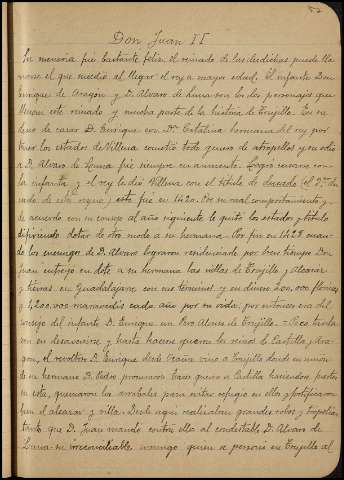 Don Juan II
Su menoria fué bastante feliz, el reinado de las desdichas puede lla
marse el que sucedió al llegar el rey a mayor edad. El infante Don
Enrique de Aragón y D. Alvaro de Luna son los dos personajes que
llenan este reinado y mucha parte de la historia de Trujillo. En su
deseo de casar D. Enrique con Dª Catalina hermana del rey por
tener los estados de Villena cometió todo genero de atropellos y su odio
a D. Alvaro de Luna fué siempre en aumento. Logró casarse con
la infanta y el rey le dió Villena con el titulo de ducado (el 2º du
cado de este reino) esto fué en 1420. Por su mal comportamiento y
de acuerdo con su consejo al año siguiente le quitó los estados y titulo
difiriendo dotar de otro modo a su hermana. Por fin en 1428 cuan
do los enemigos de D. Alvaro lograron reconciliarse por breve tiempo Don
Juan entregó en dote a su hermana las villas de Trujillo y Alcaraz
y tierras en Guadalajara con sus terminos y en dinero 200,000 florines
y 1,200,000 maravedis cada año por su vida, por entonces era del
consejo del infante D. Enrique un Pero Alonso de Trujillo. Poco tardó
en su desavenirse, y hasta hacerse guerra los reinos de Castilla y Ara
gon, el revoltoso D. Enrique desde Ocaña vino a Trujillo donde en union
de su hermano D. Pedro promovieron tenaz guerra a Castilla haciendose fuertes
en esta, quemaron los arrabales para evitar refugio en ellos y fortificaron
bien el alcazar y villa. Desde aqui realizaban grandes robos y tropelias
tanto que D. Juan mandó contra ellos al condestable D. Alvaro de
Luna su irreconciliable enemigo quien se personó en Trujillo al